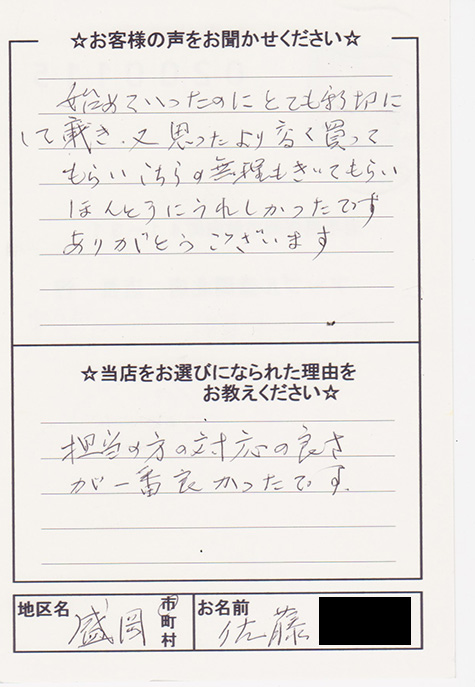 ☆お客様の声をお聞かせください☆
始めていったのにとても親切に
して戴き、又思ったより高く買って
もらいこちらの無理もきいてもらい
ほんとうにうれしかったです
ありがとうございます
☆当店をお選びになられた理由を
お教えください☆
担当の方の対応の良さ
が一番良かったです。
地区名 盛岡 市町村 お名前 佐藤